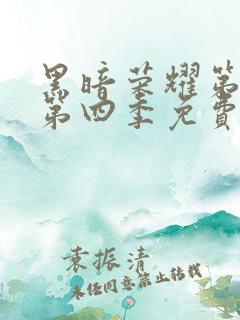 黑暗荣耀第
第四季免费
袁振清
未经同意禁止转载